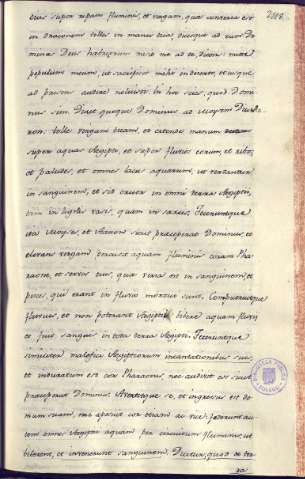 eius super ripam fluminis, et virgam, quæ conversa est
in draconem tolles in manu tua, dicesque ad eum Do-
minus Deus hebræorum misit me ad te, dicens: mitte
populum meum, ut sacrificet mihi in deserto, et usque
ad præsens audire noluisti. In hoc scies, quod Domi-
nus sim. Dixit quoque Dominus ad Moysem
tolle virgam tuam, et extende manum
super aquas Aegypti, et super fluvios eorum, et rivos
et paludes, et omnes lacus aquarum, ut vertantur
in sanguinem, et sit cruor in omni terra Aegypti,
tam in ligneis vasis, quam in saxeis. Feceruntque
ita Moyses, et Aaron sicut præceperat Dominus, et
elevans virgam percussit aquam fluminis coram Pha-
raone, et servis eius, quæ versa est in sanguinem, et
pisces, qui erant in fluvio mortui sunt, Computruitque
fluvius, et non poterant Aegyptii bibere aquam fluminis
et fuit sanguis in tota terra Aegypti. Feceruntque
similiter malefici Aegyptiorum incantationibus suis
et induratum est cor Pharaonis, nec audivit eos sicut
præceperat Dominus. Avertitque se, et ingressus est do-
mum suam, nec apposuit cor etiam ac vice foderunt au-
tem omnes Aegyptii aquam per circuitum fluminis, ut
biberent, et invenerunt sanguinem.